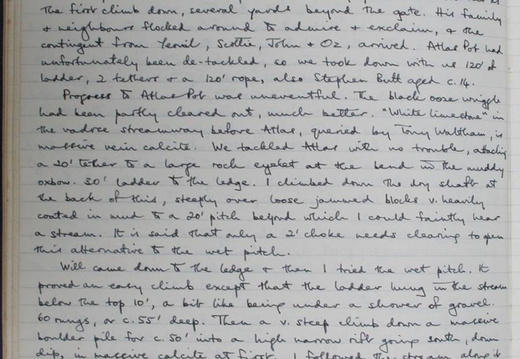 the first climb down, several yards beyond the gate. His family
& neighbours flocked around to admire & exclaim, & the
contingent from Yeovil, Scottie, John & Oz, arrived. Atlas Pot had
unfortunately been de-tackled, so we took down with us 120' of
ladder, 2 tethers & a 120' rope, also Stephen Butt aged c. 14.
Progress to Atlas Pot was uneventful. The black ooze wriggle
had been partly cleared out, much better. "White limestone" in
the vadose streamway before Atlas, queried by Tony Waltham, is
massive vein calcite. We tackled Atlas with no trouble, attaching
a 20' tether to a large rock eyelet at the bend in the muddy
oxbow. 30' ladder to the ledge. I climbed down the dry shaft at
the back of this, steeply over loose jammed blocks v. heavily
coated in mud to a 20' pitch beyond which I could faintly hear
a stream. It is said that only a 2' choke needs clearing to open
this alternative to the wet pitch.
Will came down to the ledge & then I tried the wet pitch. It
proved an easy climb except that the ladder hung in the stream
below the top 10', a bit like being under a shower of gravel.
60 rungs, or c. 55' deep. Then a v. steep climb down a massive
boulder pile for c. 50' into a high narrow rift going south, down
dip, in massive calcite at first. I followed the stream along